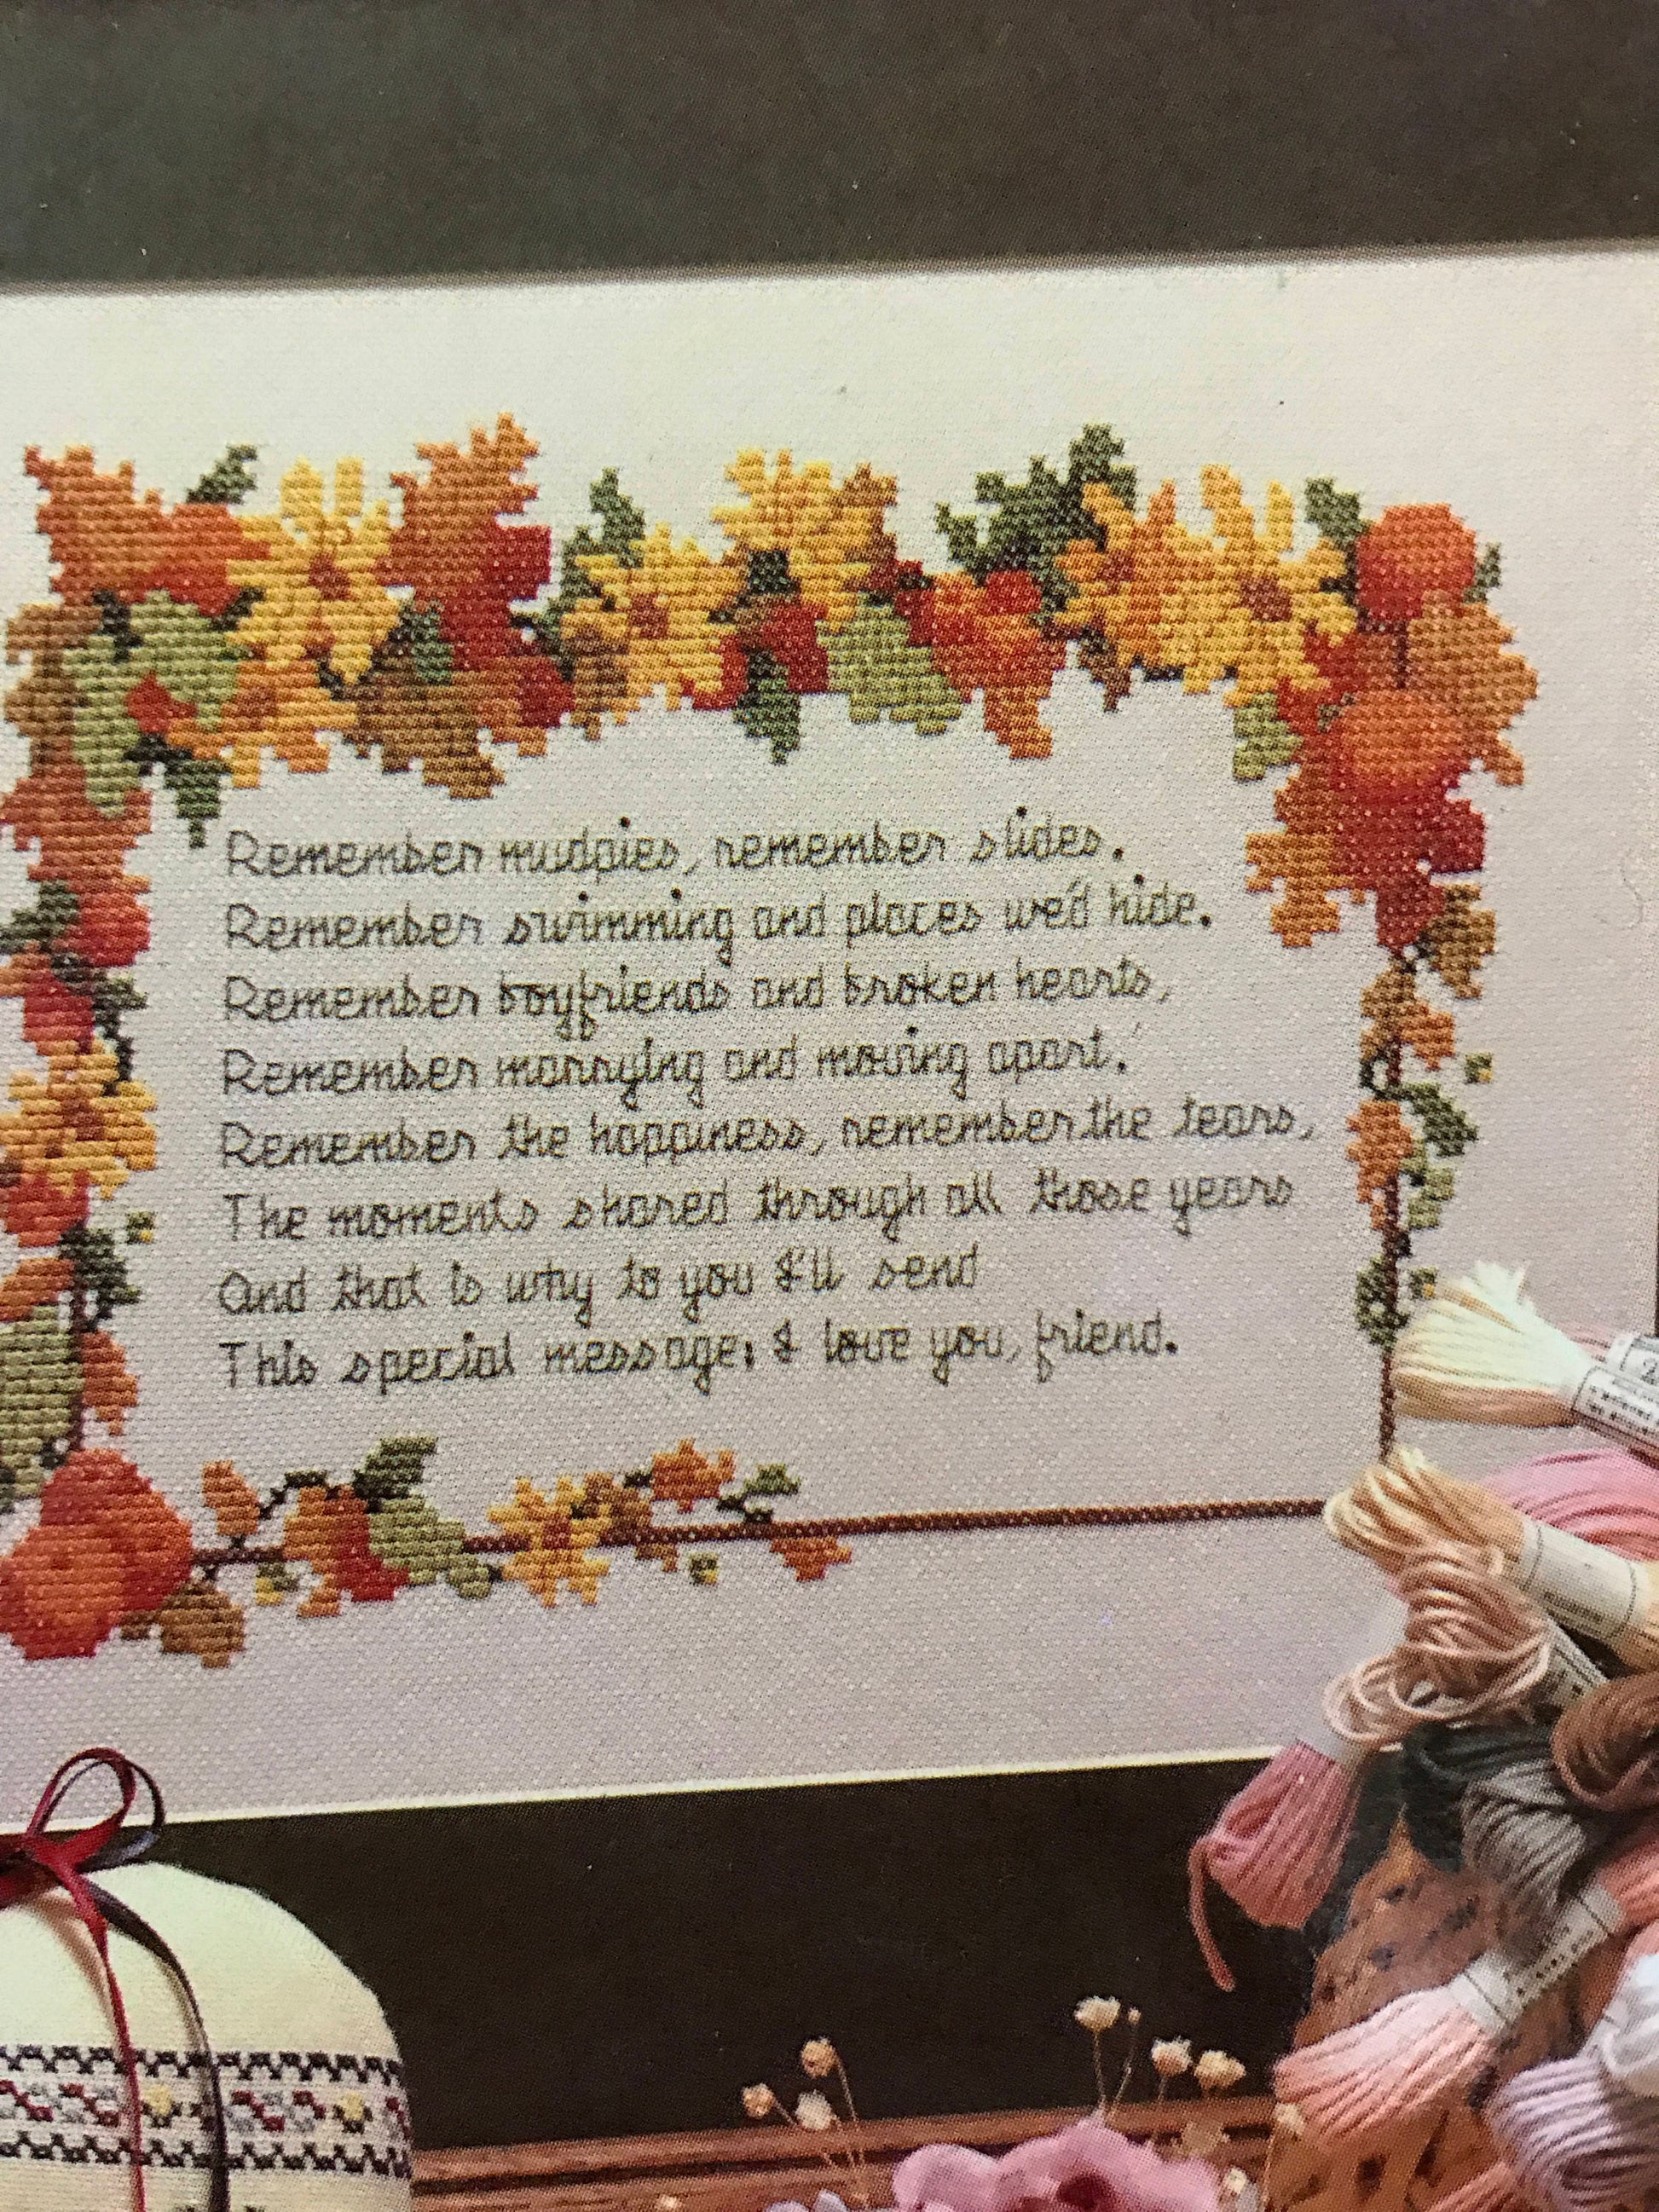 Remember mudpies, remember slides.
Remember swimming and places we'd hide.
Remember boyfriends and broken hearts,
Remember marrying and moving apart.
Remember the happiness, remember the tears,
The moments shared through all those years
And that is why to you I'll send
This special message: I love you, friend.